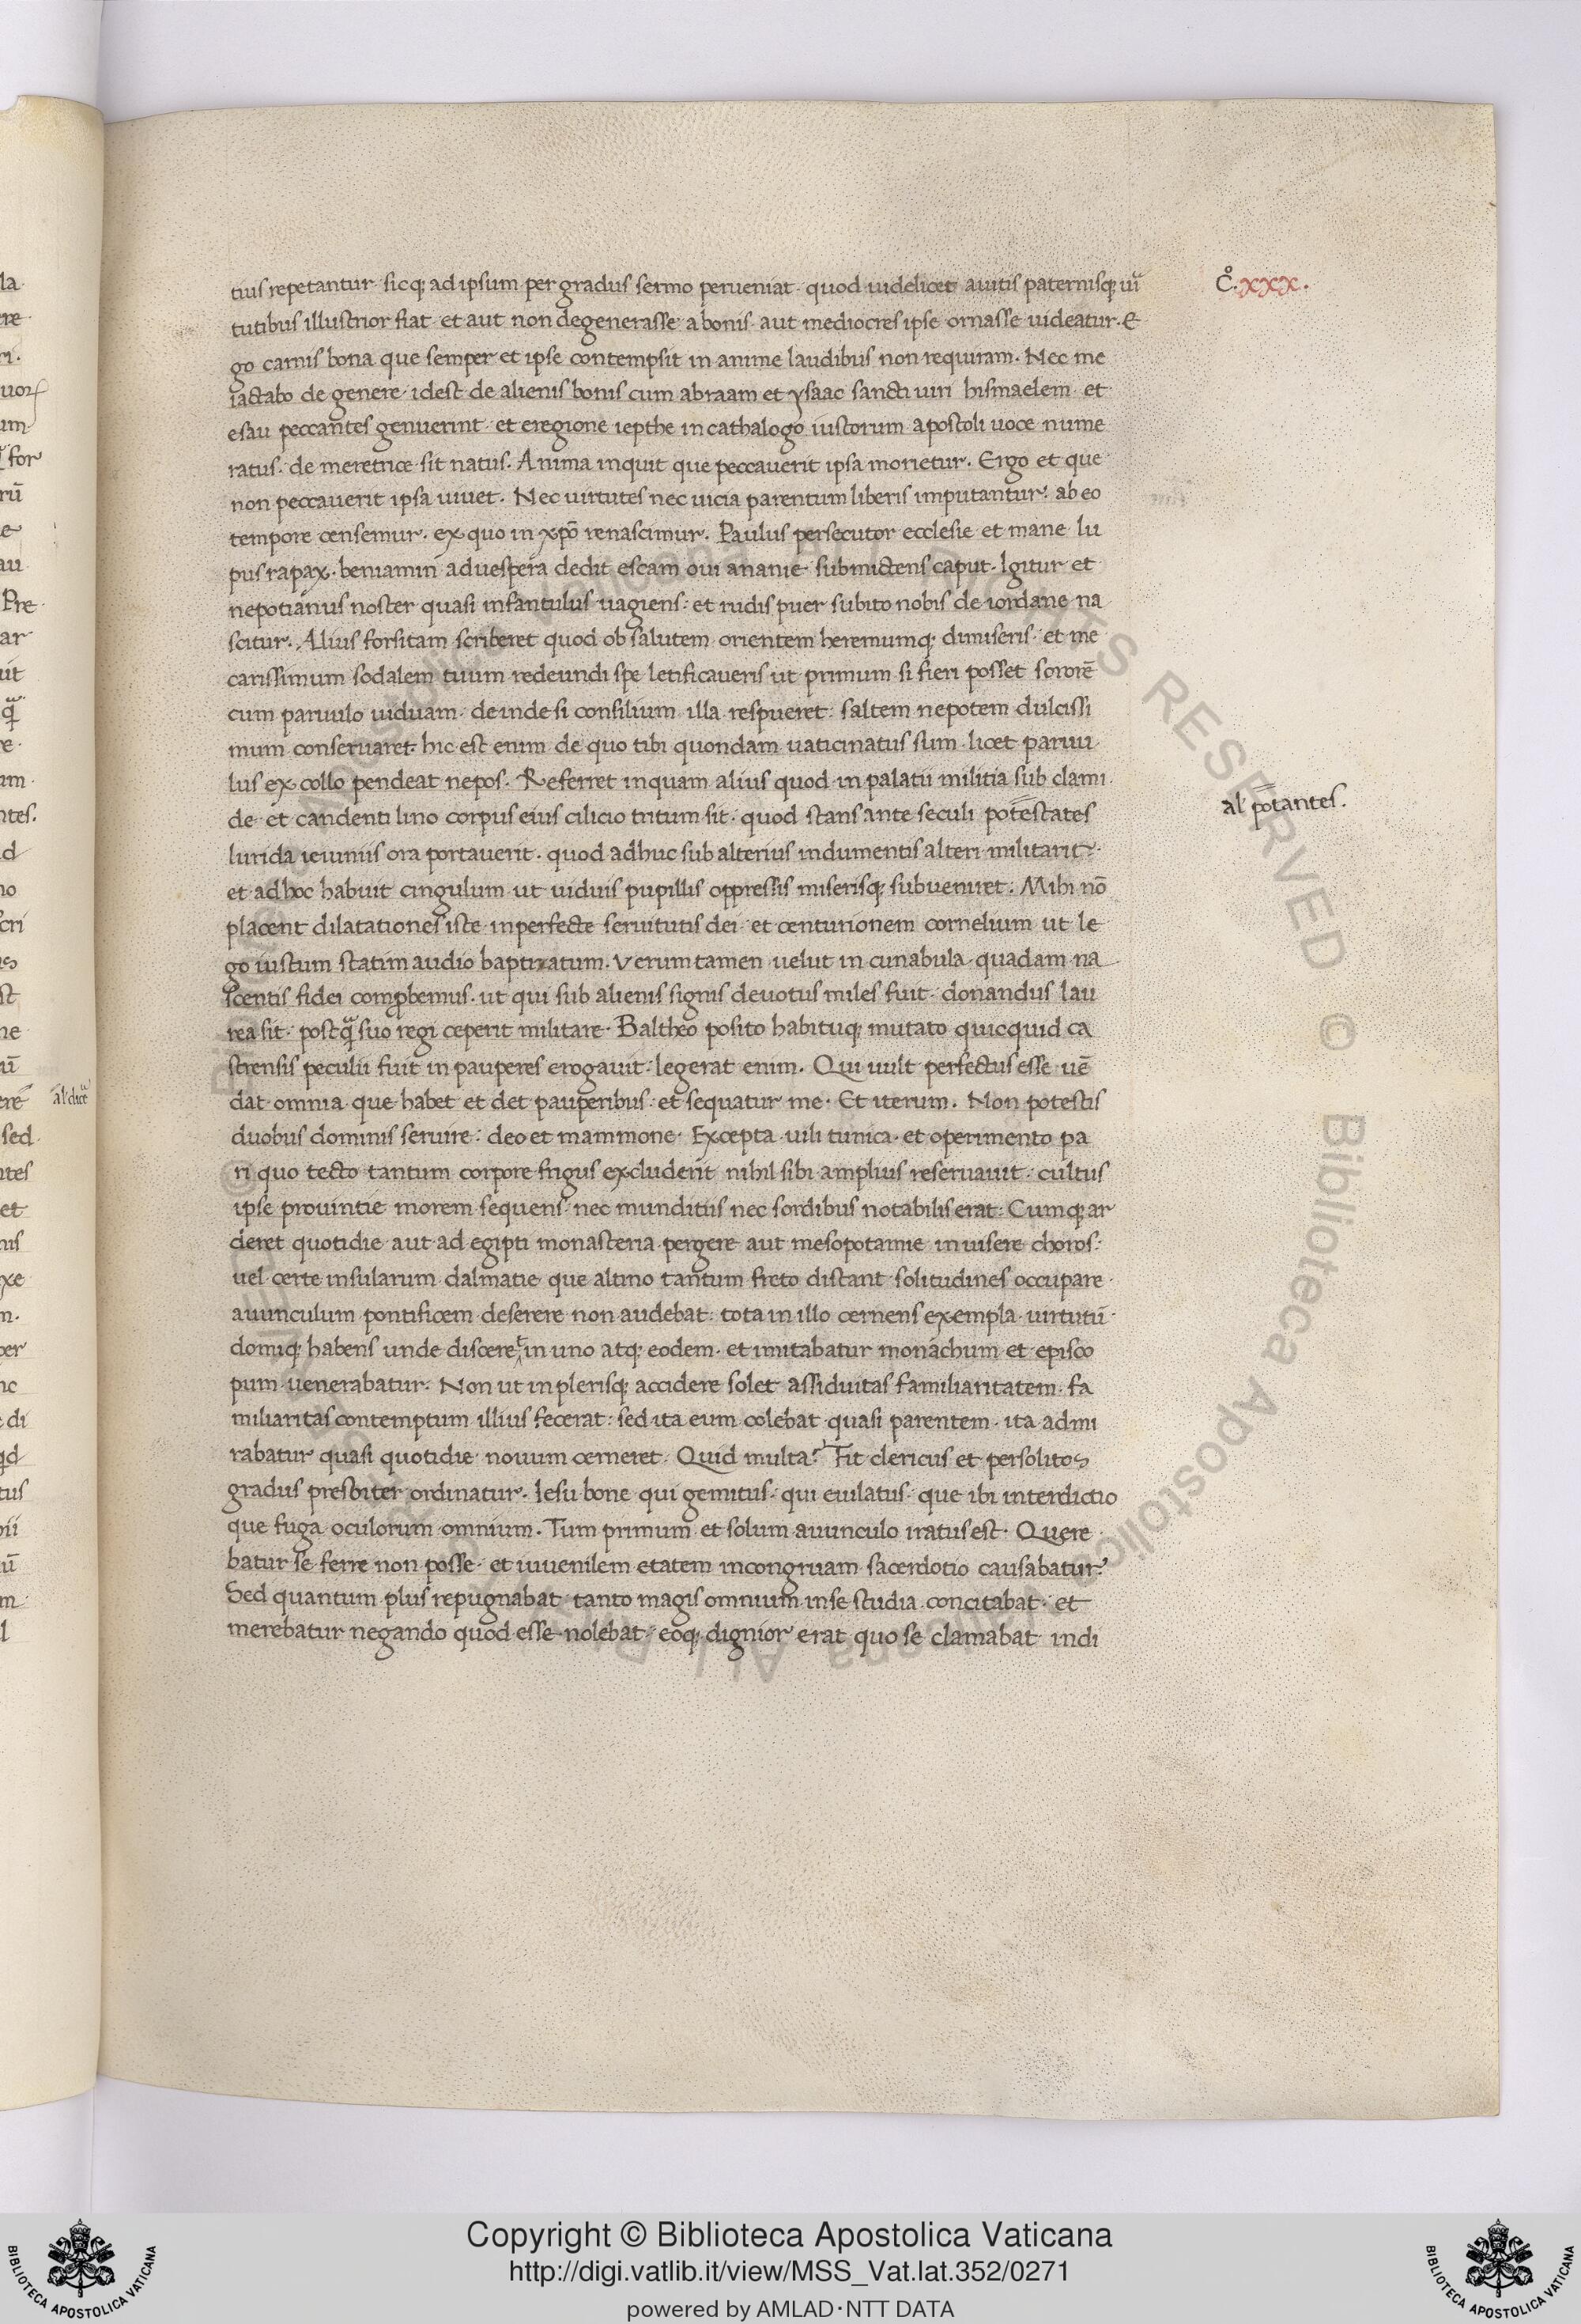 tius repetantur· sicq; ad ipsum per gradus sermo perueniat· quod uidelicet auitis paternisq; uir̃
tutibus illustrior fiat· et aut non degenerasse a bonis· aut mediocres ipse ornasse uideatur. E
go carnis bona que semper et ipse contempsit in anime laudibus non requiram. Nec me
iactabo de genere· idest de alienis bonis cum abraam et ysaac sancti uiri hismaelem· et
esau peccantes genuerint· et eregione iepthe in cathalogo iustorum apostoli uoce nume
ratus· de meretrice sit natus. Anima inquit que peccauerit ipsa morietur. Ergo et que
non peccauerit ipsa uiuet. Nec uirtutes nec uicia parentum liberis imputantur: ab eo
tempore censemur· ex quo in xp̄o renascimur. Paulus persecutor ecclesie· et mane lu
pus rapax· beniamin ad uespera dedit escam oui ananie· submictens caput. Igitur et
nepotianus noster quasi infantulus uagiens: et rudis puer subito nobis de iordane na
scitur. Alius forsitam scriberet quod ob salutem· orientem heremumq; dimiseris· et me
carissimum sodalem tuum redeundi spe letificaueris ut primum si fieri posset sororē
cum paruulo uiduam· deinde si consilium illa respueret: saltem nepotem dulcissi
mum conseruaret· hic est enim de quo tibi quondam uaticinatus sum· licet paruu
lus ex collo pendeat nepos. Referret inquam alius quod in palatii militia sub clami
de· et candenti lino corpus eius cilicio tritum sit· quod stans ante seculi potestates
lurida ieiuniis ora portauerit· quod adhuc sub alterius indumentis alteri militarit·
et ad hoc habuit cingulum ut uiduis pupillis oppressis miserisq; subueniret: Mihi nō
placent dilatationes iste inperfecte seruitutis dei· et centurionem cornelium ut le
go iustum statim audio baptizatum. Verum tamen uelut in cunabula quadam na
scentis fidei comprobemus· ut qui sub alienis signis deuotus miles fuit· donandus lau
rea sit· postq̄ suo regi ceperit militare· Baltheo posito habituq; mutato quicquid ca
strensis peculii fuit in pauperes erogauit: legerat enim. Qui uult perfectus esse uē
dat omnia que habet et det pauperibus· et sequatur me· Et iterum. Non potestis
duobus dominis seruire: deo et mammone· Excepta uili tunica· et operimento pa
ri quo tecto tantum corpore frigus excluderit nihil sibi amplius reseruauit· cultus
ipse prouintie morem sequens· nec munditiis nec sordibus notabilis erat: Cumq; ar
deret quotidie aut ad egipti monasteria pergere aut mesopotamie inuisere choros:
uel certe insularum dalmatie que altino tantum freto distant solitudines occupare
auunculum pontificem deserere non audebat: tota in illo cernens exempla uirtutū·
domiq; habens unde disceret in uno atq; eodem· et imitabatur monachum et episco
pum uenerabatur· Non ut in plerisq; accidere solet assiduitas familiaritatem· fa
miliaritas contemptum illius fecerat: sed ita eum colebat quasi parentem· ita admi
rabatur quasi quotidie nouum cerneret· Quid multa? Fit clericus et per solitos
gradus presbiter ordinatur. Iesu bone qui gemitus· qui eiulatus· que ibi interdictio
que fuga oculorum omnium. Tum primum et solum auunculo iratus est· Quere
batur se ferre non posse· et iuuenilem etatem incongruam sacerdotio causabatur:
Sed quantum plus repugnabat tanto magis omnium in se studia concitabat· et
merebatur negando quod esse nolebat· eoq; dignior erat quo se clamabat indi
C̊. xxx.
al' pōtantes.
al' dicit̃
Copyright © Biblioteca Apostolica Vaticana
http://digi.vatlib.it/view/MSS_Vat.lat.352/0271
powered by AMLAD·NTT DATA
BIBLIOTECA APOSTOLICA VATICANA
BIBLIOTECA APOSTOLICA VATICANA